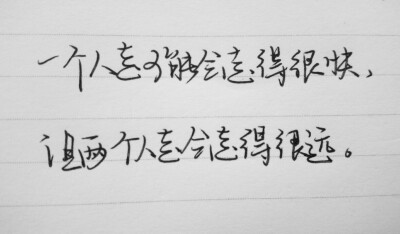 一个人走可能会走得很快，
但两个人走会走得很远。